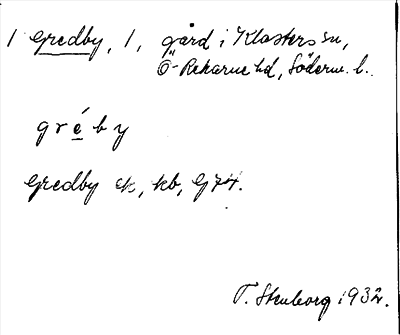 1 Gredby, 1, gård i Klosters sn,
Ö-Rekarne hd, Söderm. l.
gréby
Gredby ek, kb, G74.
T. Stenborg 1932.